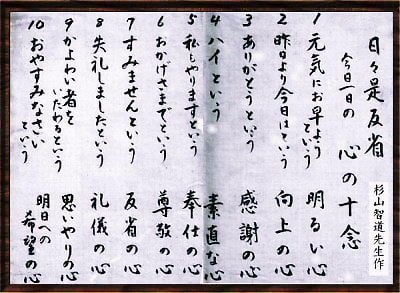 日々是反省
今日一日の 心の十念
杉山智道先生作
1 元気にお早ようという 明るい心
2 昨日より今日はという 向上の心
3 ありがとうという 感謝の心
4 ハイという 素直な心
5 私もやりますという 奉仕の心
6 おかげさまでという 尊敬の心
7 すみませんという 反省の心
8 失礼しましたという 礼儀の心
9 かよわい者をいたわるという 思いやりの心
10 おやすみなさいという 明日への希望の心